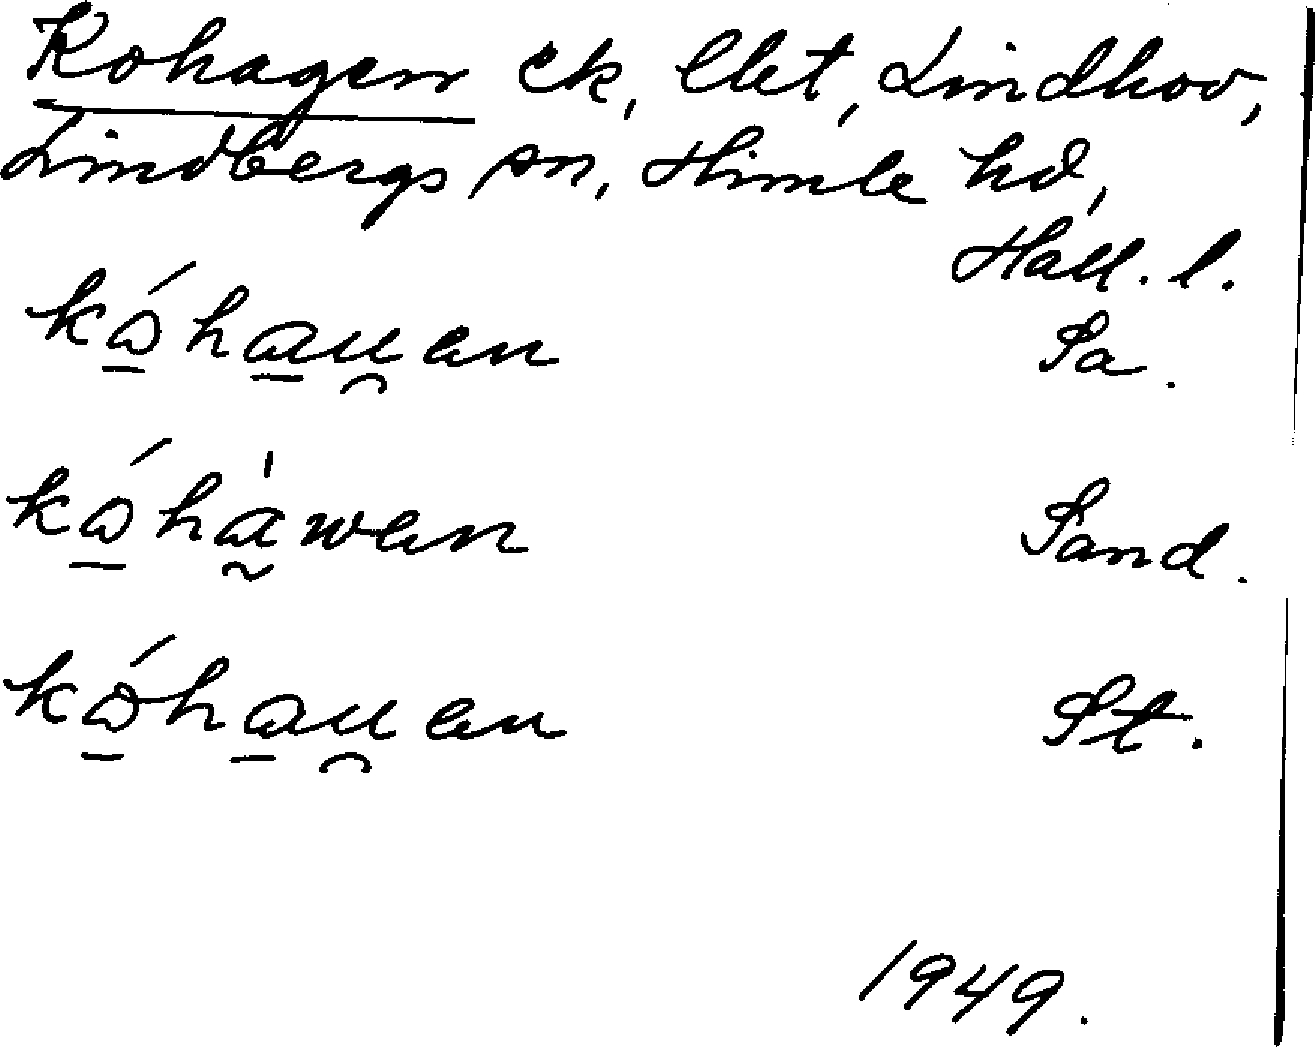 Kohagen ek, lbt, Lindhov,
Lindbergs sn, Himle hd,
Hall. l.
kɷ̲́ha̲u̯en Sa.
kɷ̲́hà̰wen Sand.
kɷ̲́ha̲u̯en St.
1949.